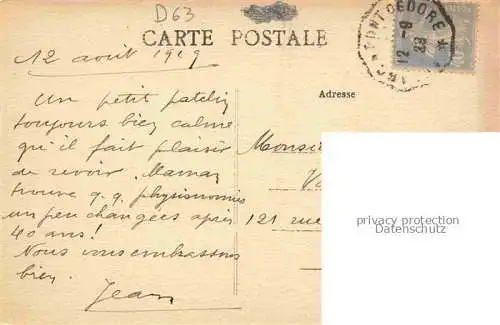 D63
CARTE POSTALE
PONT DEDORE
12 - 8
12 août 1929
Adresse
Un petit patelin
toujours bien calme
qu'il fait plaisir
de revoir. Maman
trouve q.q. physionomies
un peu changées après
40 ans!
Nous vous embrassons
bien.
Jean
Monsieur
121 rue
privacy protection
Datenschutz